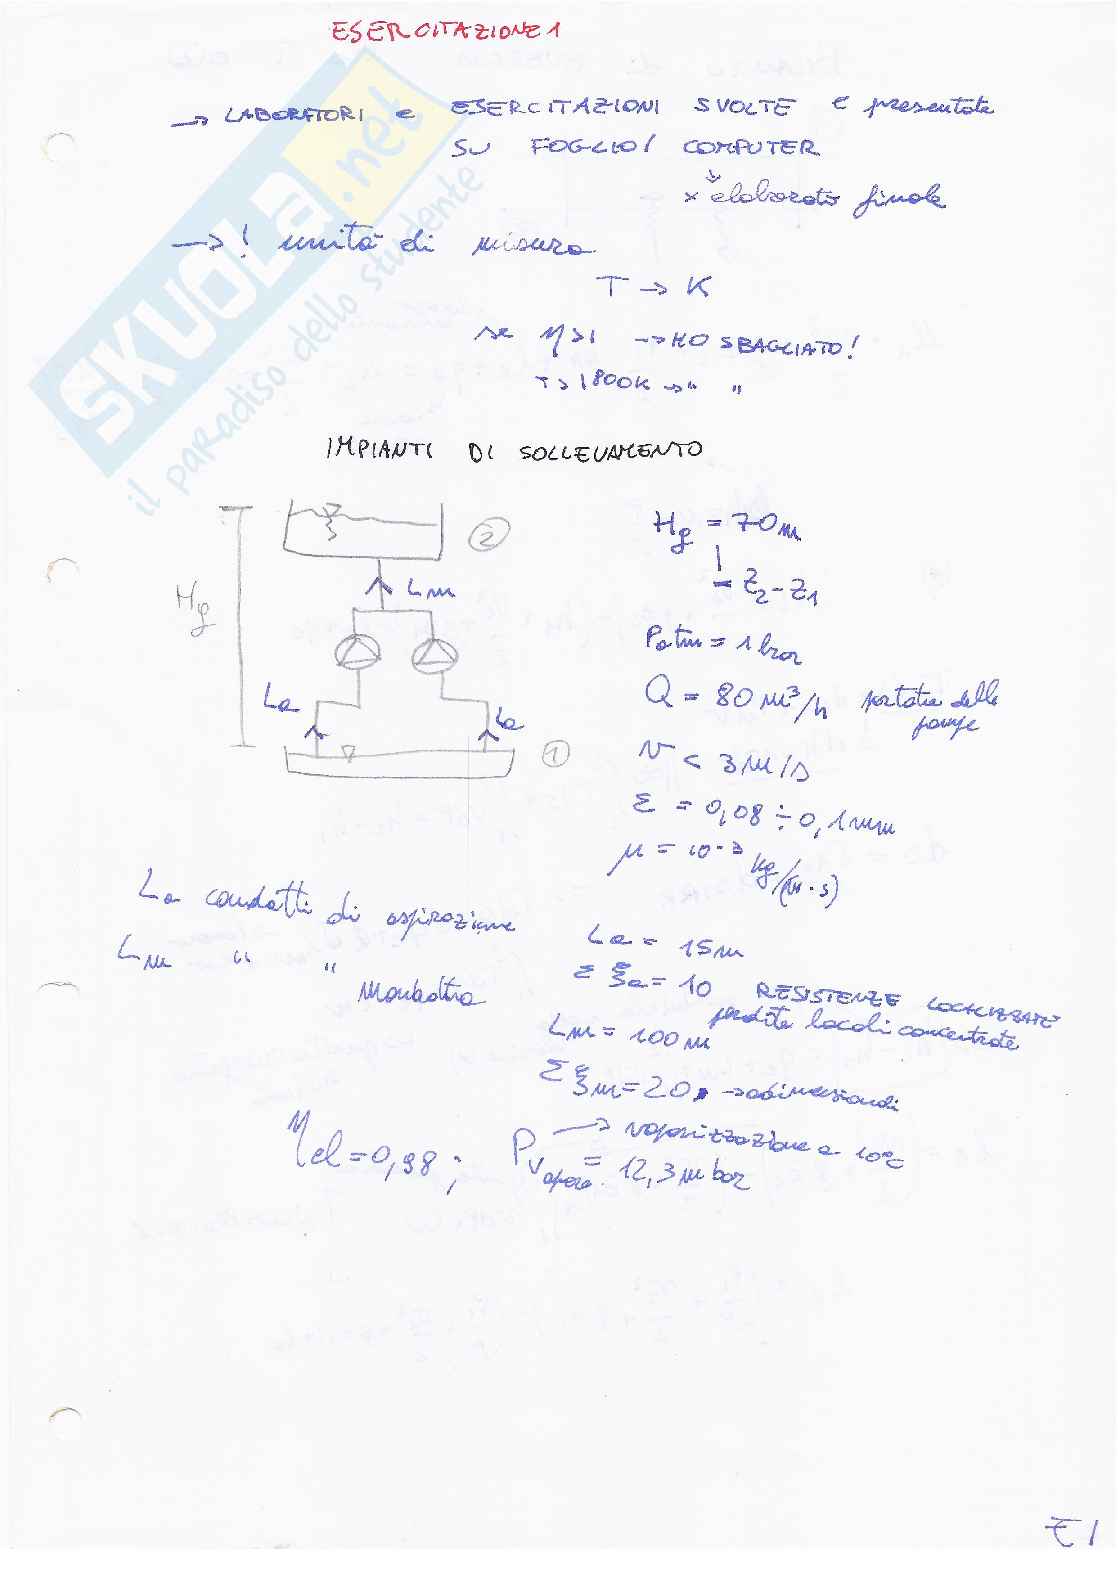 ESERCITAZIONE 1
→ LABORATORI e ESERCITAZIONI SVOLTE e presentate
SU FOGLIO/ COMPUTER
x elaborato finale
→ ! unità di misura
T → K
se η>1 → HO SBAGLIATO!
T > 1800K → " "
SKUOLA.net
il paradiso dello studente
IMPIANTI DI SOLLEVAMENTO
Hg
2
Lm
La
La
1
Hg = 70m
= Z2-Z1
Patm = 1 bar
Q = 80 m³/h portata delle pompe
v < 3m/s
ε = 0,08 ÷ 0,1mm
μ = 10-3 kg/(m·s)
La condotti di aspirazione
Lm " " mandata
La = 15m
Σ ξa = 10 RESISTENZE LOCALIZZATE
perdite locali concentrate
Lm = 100m
Σ ξm = 20 → adimensionali
ηel = 0,98 ; Pvapore = 12,3 m bar
→ vaporizzazione a 10°C
E1